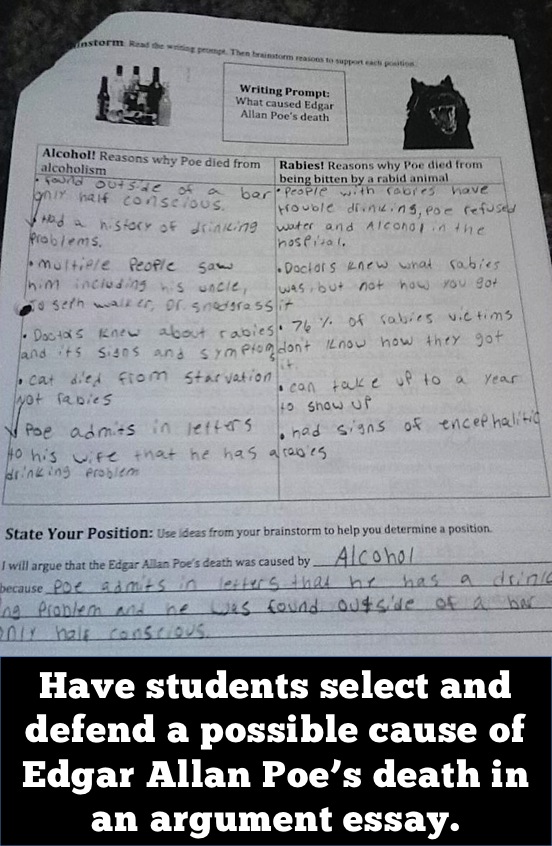 instorm: Read the writing prompt. Then brainstorm reasons to support each position.
Writing Prompt:
What caused Edgar
Allan Poe's death
Alcohol! Reasons why Poe died from
alcoholism
• found outside of a bar
only half conscious.
Had a history of drinking
problems.
• multiple people saw
him including his uncle,
Jo seph walker, Dr. snodgrass
• Doctors knew about rabies
and its signs and symptom
• cat died from starvation
not rabies
Poe admits in letters
to his wife that he has a
drinking problem
Rabies! Reasons why Poe died from
being bitten by a rabid animal
• People with rabies have
trouble drinking, poe refused
water and Alcohol in the
hospital.
• Doctors knew what rabies
was, but not how you got
it
• 76 % of rabies victims
don't know how they got
it.
• can take up to a year
to show up
• had signs of encephalitic
rabies
State Your Position: Use ideas from your brainstorm to help you determine a position.
I will argue that the Edgar Allan Poe's death was caused by Alcohol
because poe admits in letters that he has a drinki
ng problem and he was found outside of a bar
only half conscious.
Have students select and
defend a possible cause of
Edgar Allan Poe's death in
an argument essay.